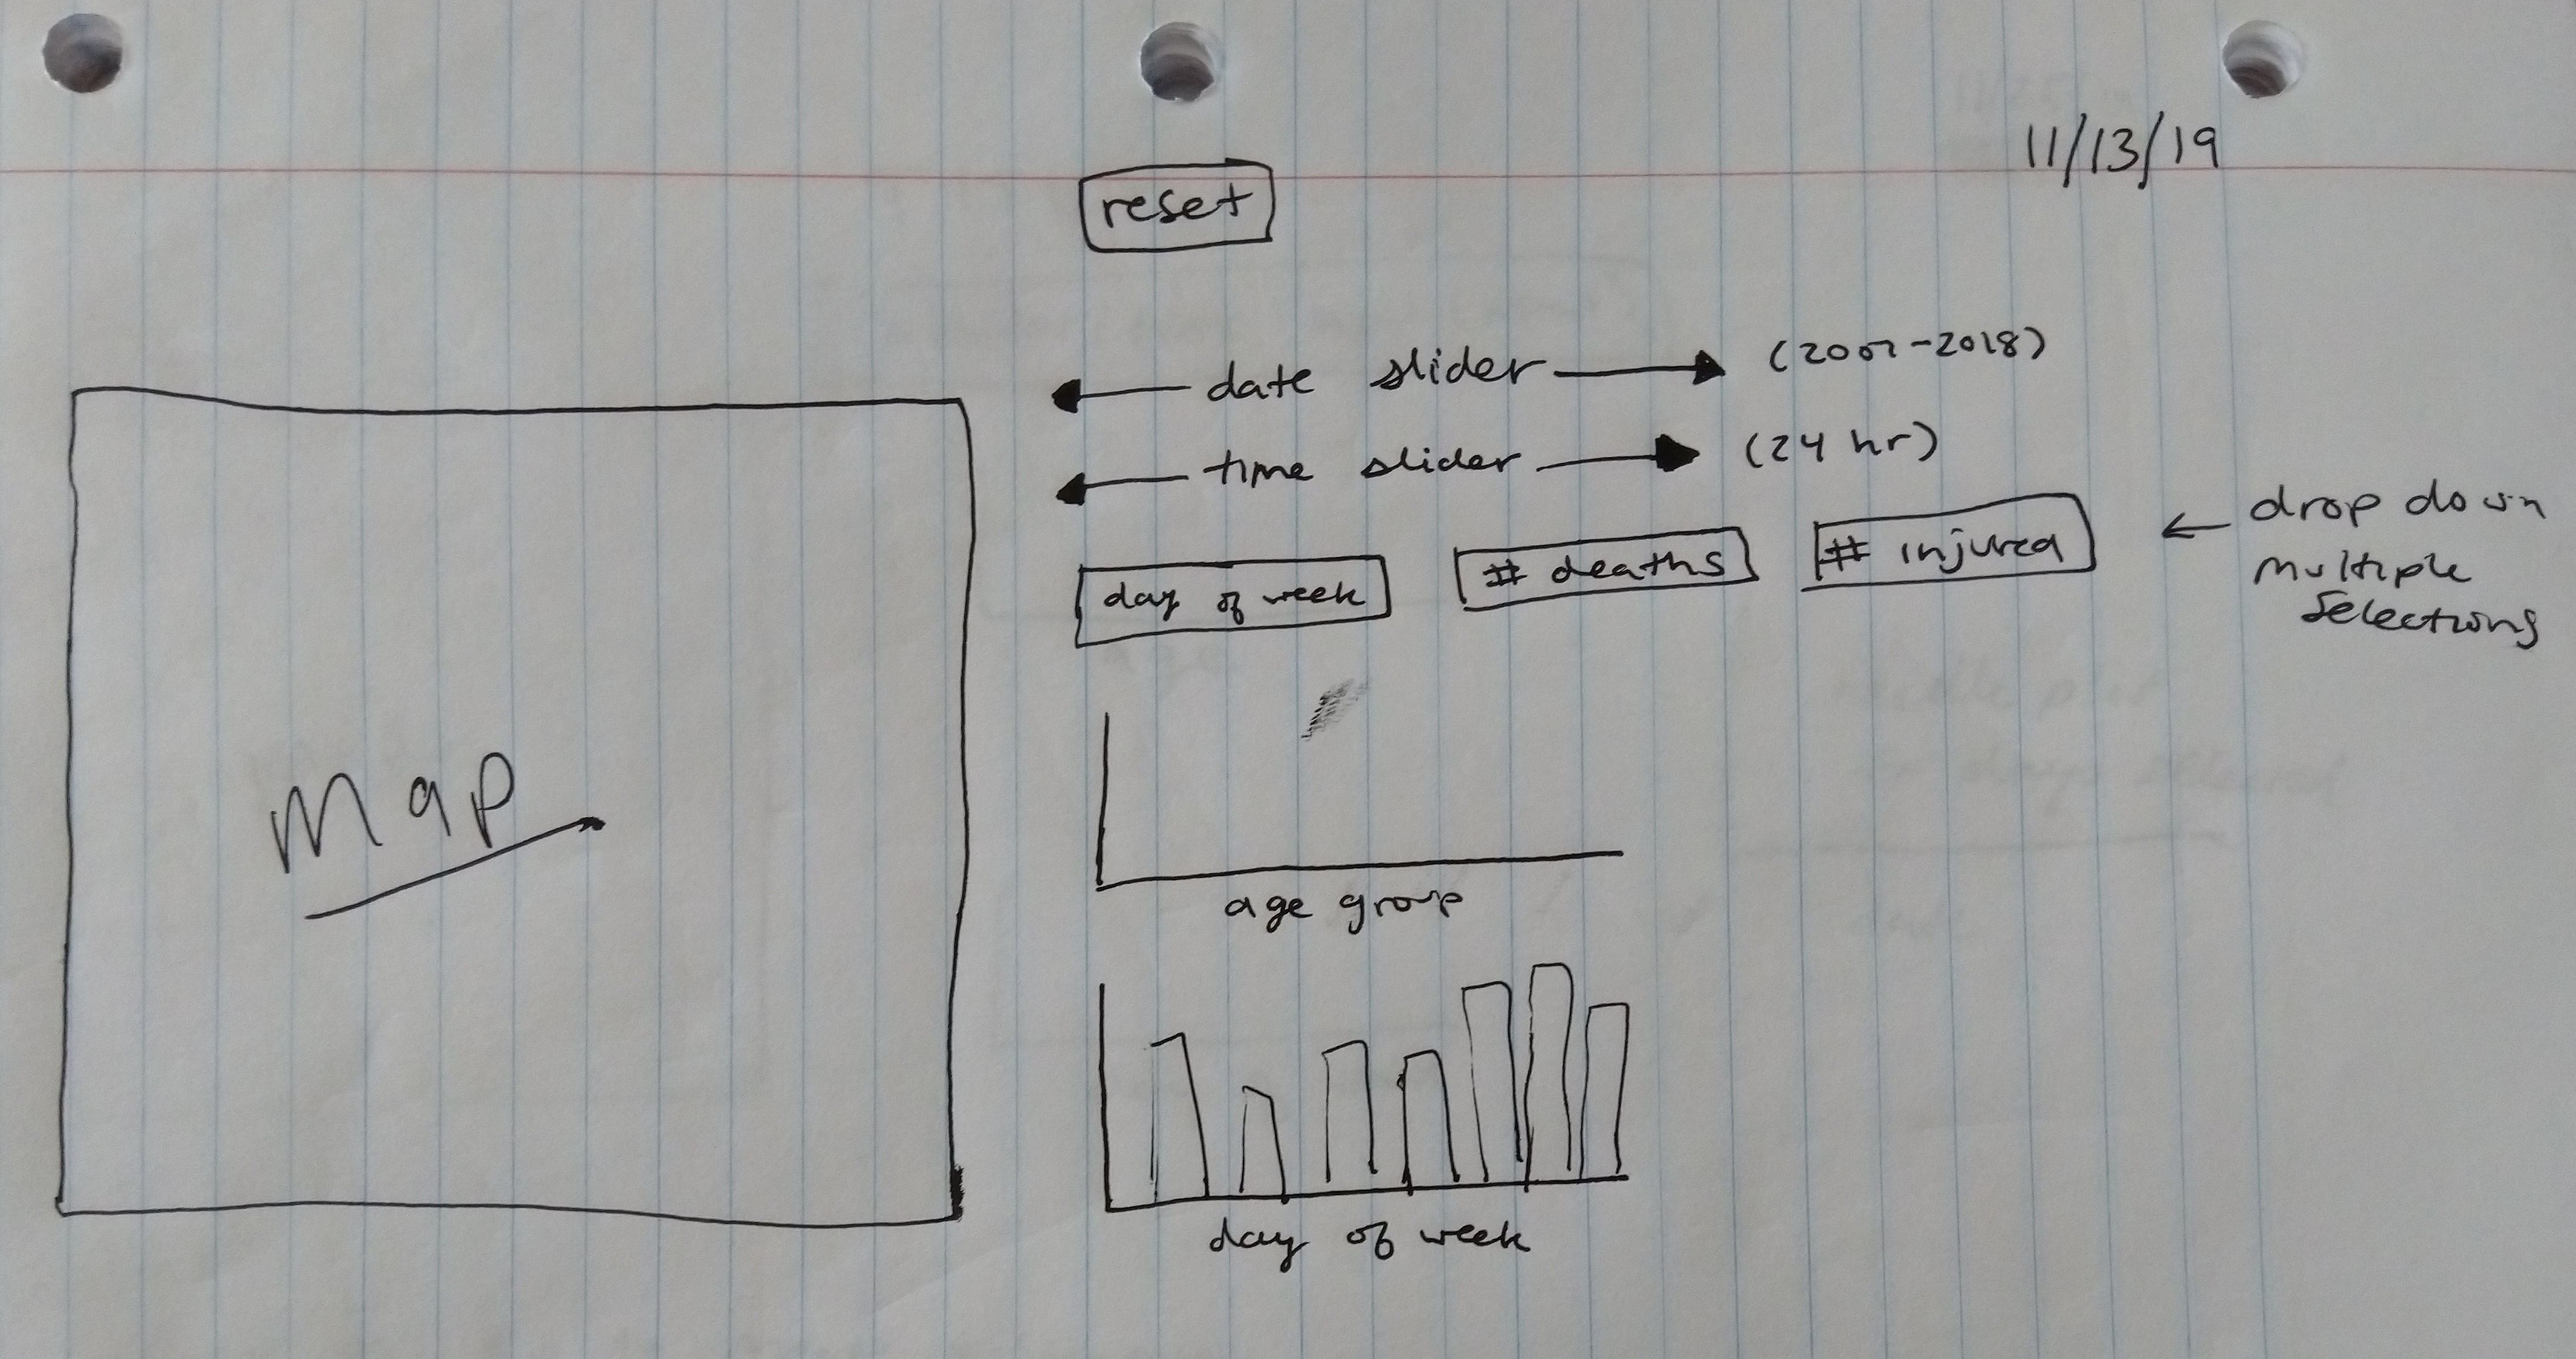 11/13/19
reset
date slider (2007-2018)
time slider (24 hr)
day of week # deaths # injured ← drop down
multiple
selections
Map
age group
day of week